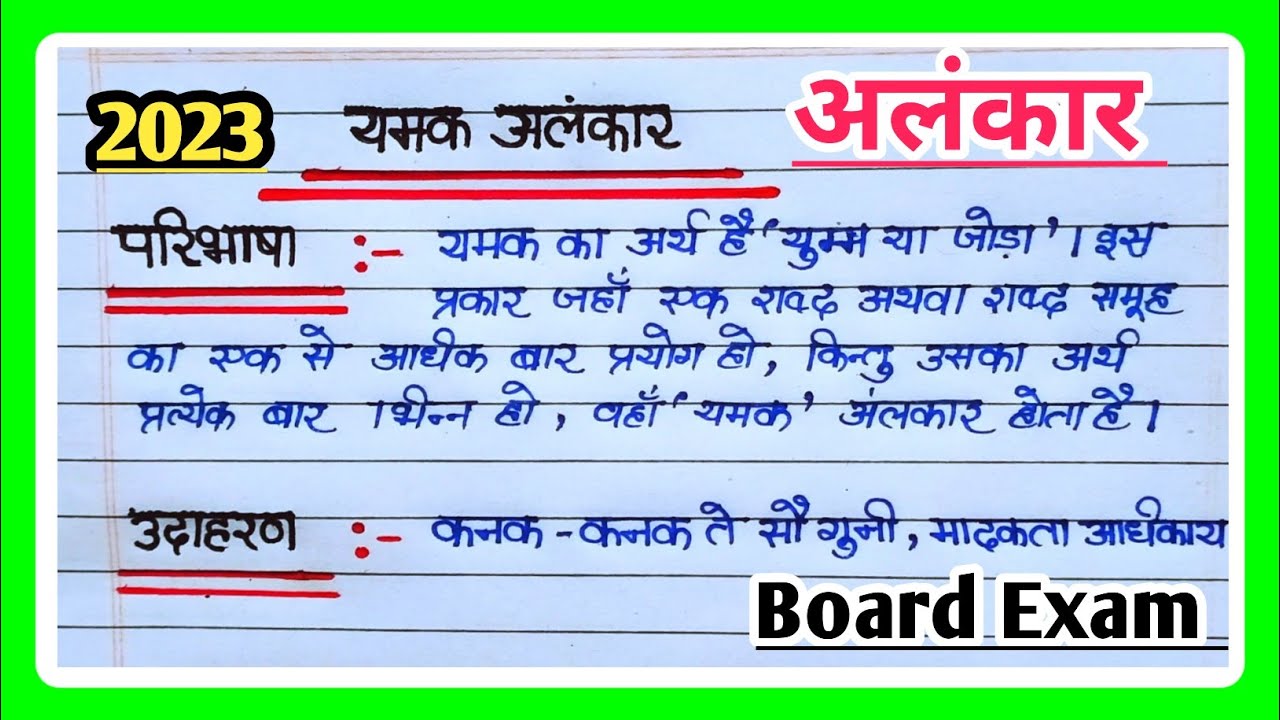 2023
यमक अलंकार
अलंकार
परिभाषा :- यमक का अर्थ है 'युग्म या जोड़ा' । इस
प्रकार जहाँ एक शब्द अथवा शब्द समूह
का एक से अधिक बार प्रयोग हो, किन्तु उसका अर्थ
प्रत्येक बार भिन्न हो, वहाँ 'यमक' अंलकार होता है।
उदाहरण :- कनक - कनक ते सौ गुनी, मादकता अधिकाय
Board Exam